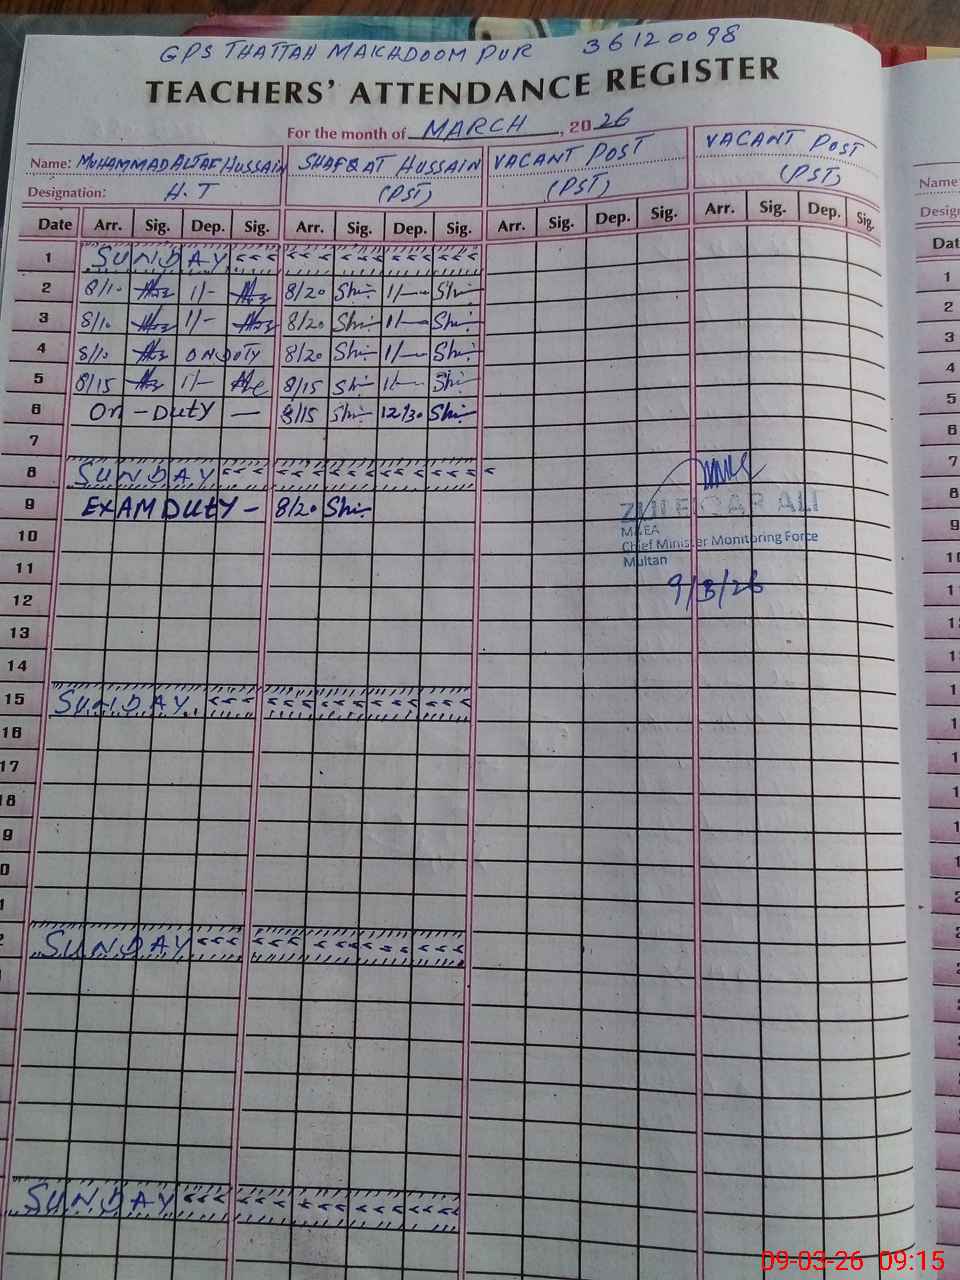 GPS THATTAH MAKHDOOM PUR 36120098
TEACHERS' ATTENDANCE REGISTER
For the month of MARCH, 2026
Name: MUHAMMAD ALTAF HUSSAIN SHAFQAT HUSSAIN VACANT POST VACANT POST
Designation: H.T (PST) (PST) (PST)
Date Arr. Sig. Dep. Sig. Arr. Sig. Dep. Sig. Arr. Sig. Dep. Sig. Arr. Sig. Dep. Sig.
1 SUNDAY
2 8/10 1/- 8/20 1/-
3 8/10 1/- 8/20 1/-
4 8/10 ON DUTY 8/20 1/-
5 8/15 1/- 8/15 1/-
6 On - DUtY - 8/15 12/30
7
8 SUNDAY
9 EXAM DUtY - 8/20
10
11
12
13
14
15 SUNDAY
16
17
18
9
0
1
2 SUNDAY
SUNDAY
ZULFIQAR ALI
MEA
Chief Minister Monitoring Force
Multan
9/3/26
Name
Desig
Dat
1
2
3
4
5
6
7
8
9
10
11
09-03-26 09:15